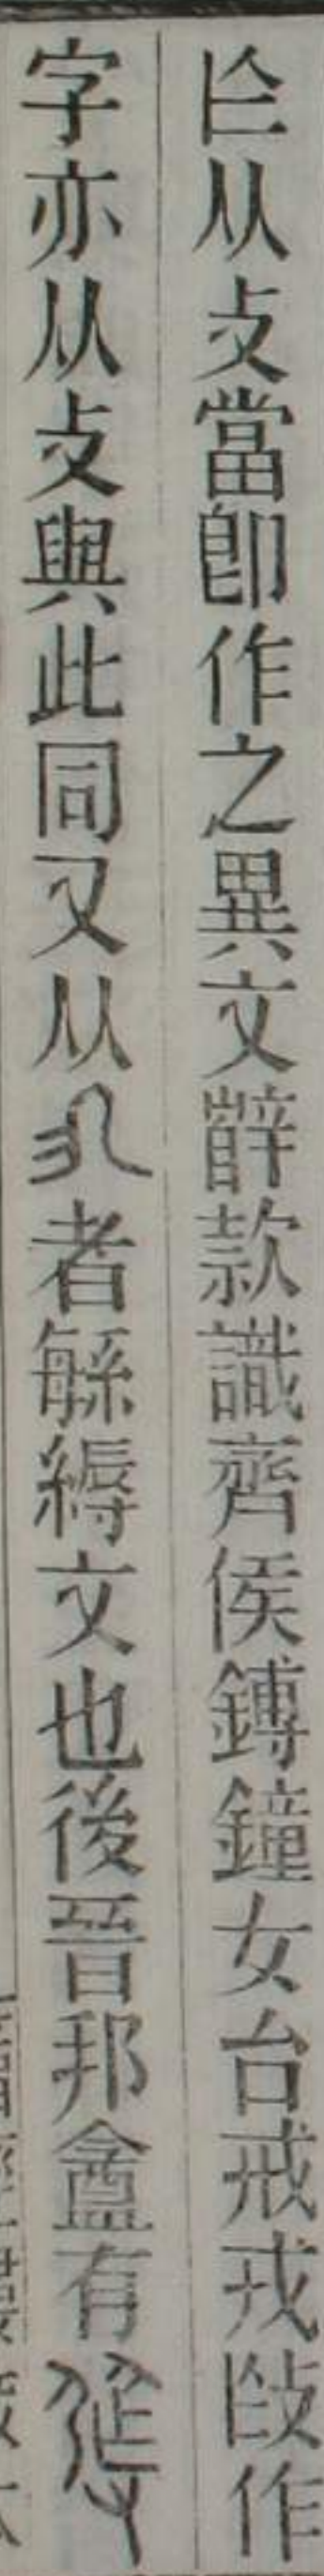 从攴當卽作之異文辥款識齊侯鎛鐘女台戒戎作
字亦从攴與此同又从者緐縟文也後晉邦盦有